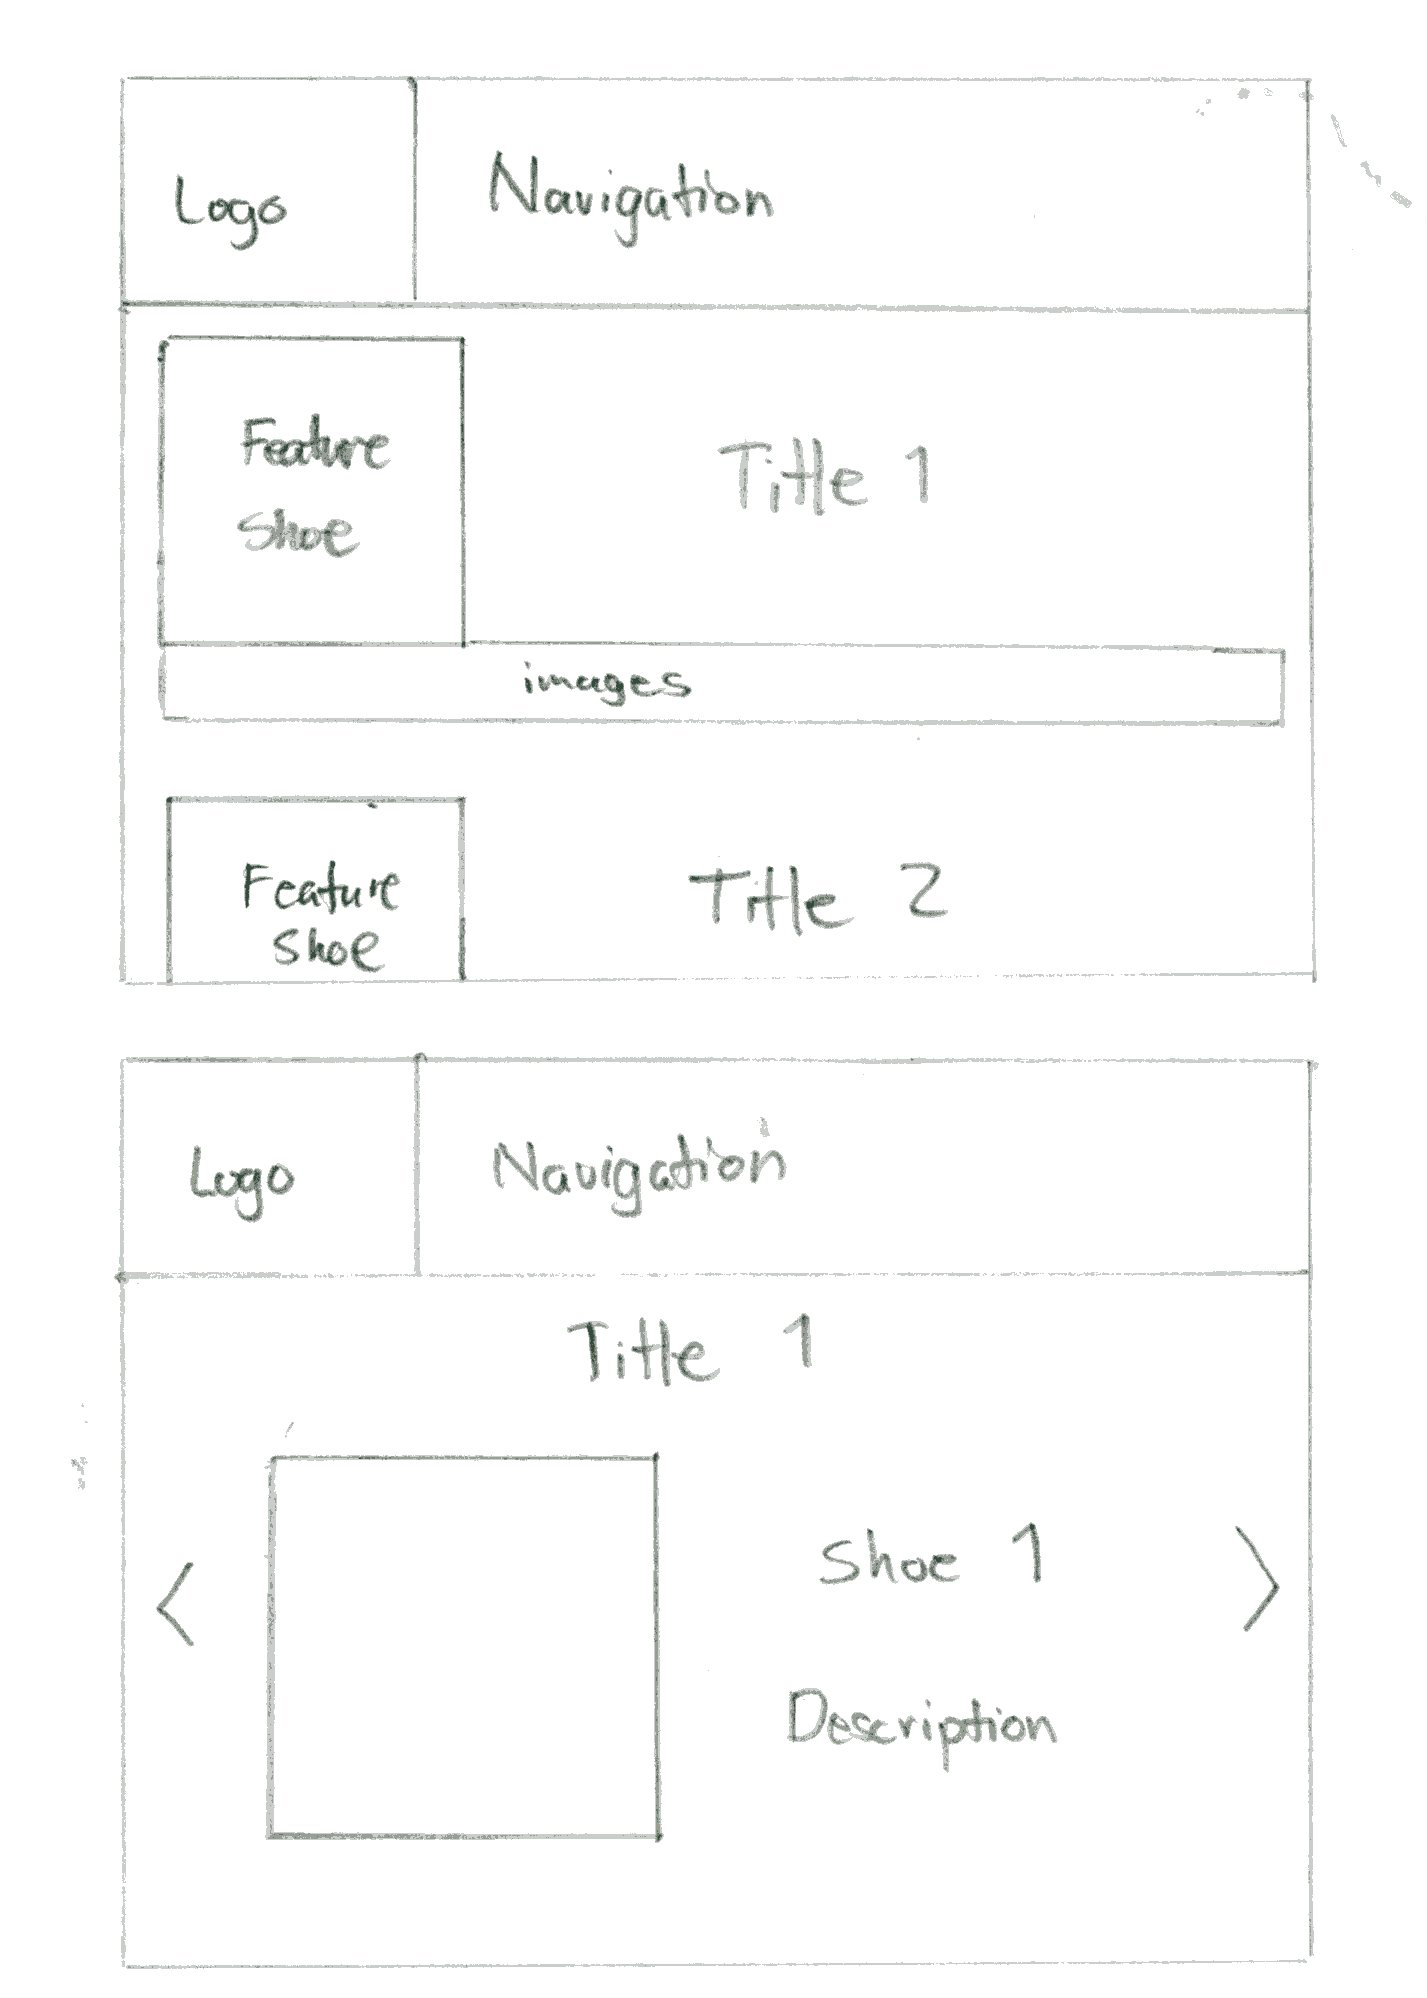 Logo
Navigation
Feature
Shoe
Title 1
images
Feature
Shoe
Title 2
Logo
Navigation
Title 1
<
Shoe 1
>
Description